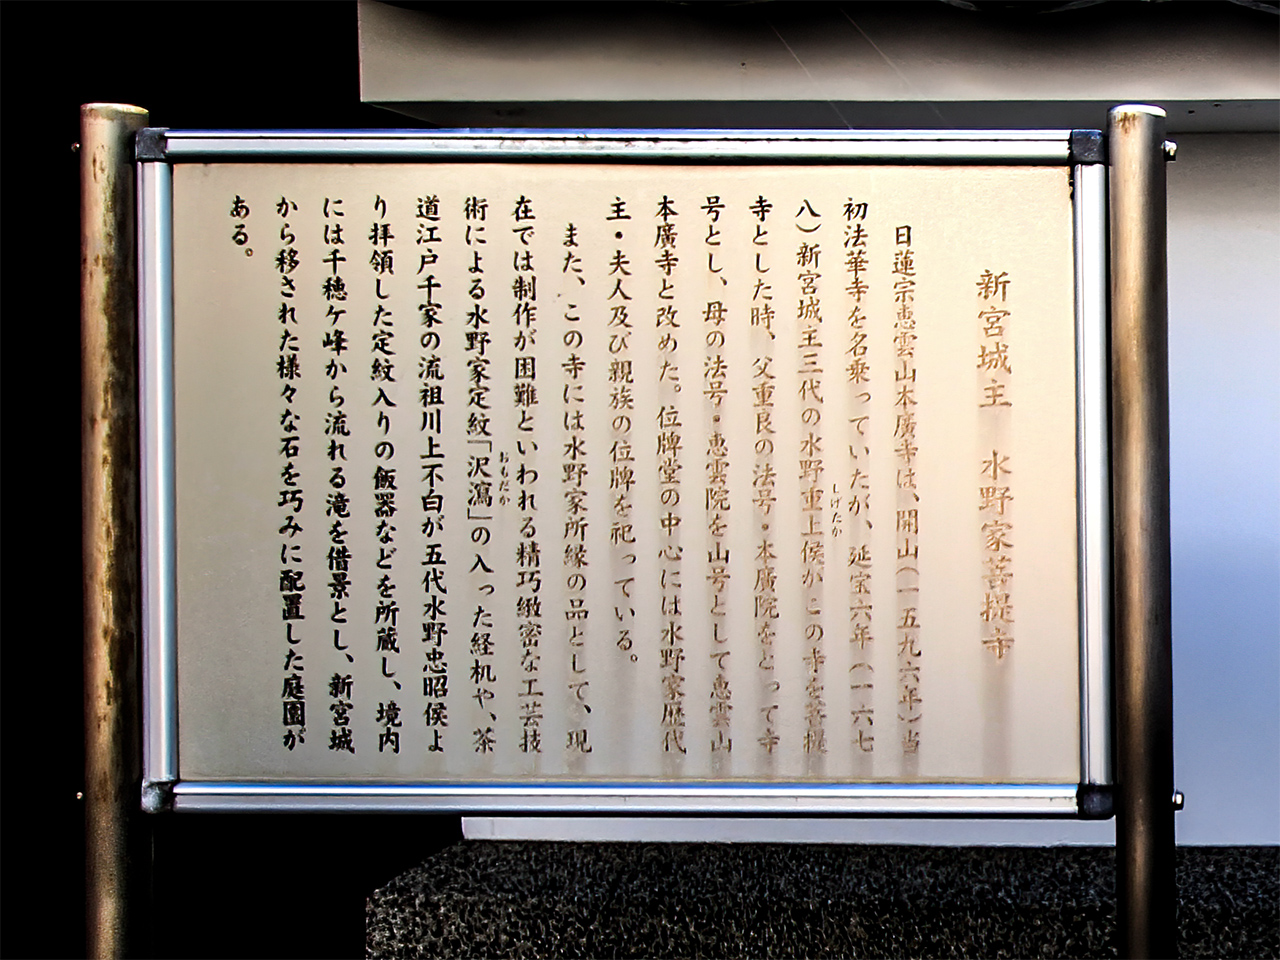 新宮城主　水野家菩提寺
日蓮宗恵雲山本廣寺は、開山（一五九六年）当
初法華寺を名乗っていたが、延宝六年（一六七
八）新宮城主三代の水野重上侯がこの寺を菩提
しげたか
寺とした時、父重良の法号・本廣院をとって寺
号とし、母の法号・恵雲院を山号として恵雲山
本廣寺と改めた。位牌堂の中心には水野家歴代
主・夫人及び親族の位牌を祀っている。
また、この寺には水野家所縁の品として、現
在では制作が困難といわれる精巧緻密な工芸技
術による水野家定紋「沢瀉」の入った経机や、茶
おもだか
道江戸千家の流祖川上不白が五代水野忠昭侯よ
り拝領した定紋入りの飯器などを所蔵し、境内
には千穂ケ峰から流れる滝を借景とし、新宮城
から移された様々な石を巧みに配置した庭園が
ある。